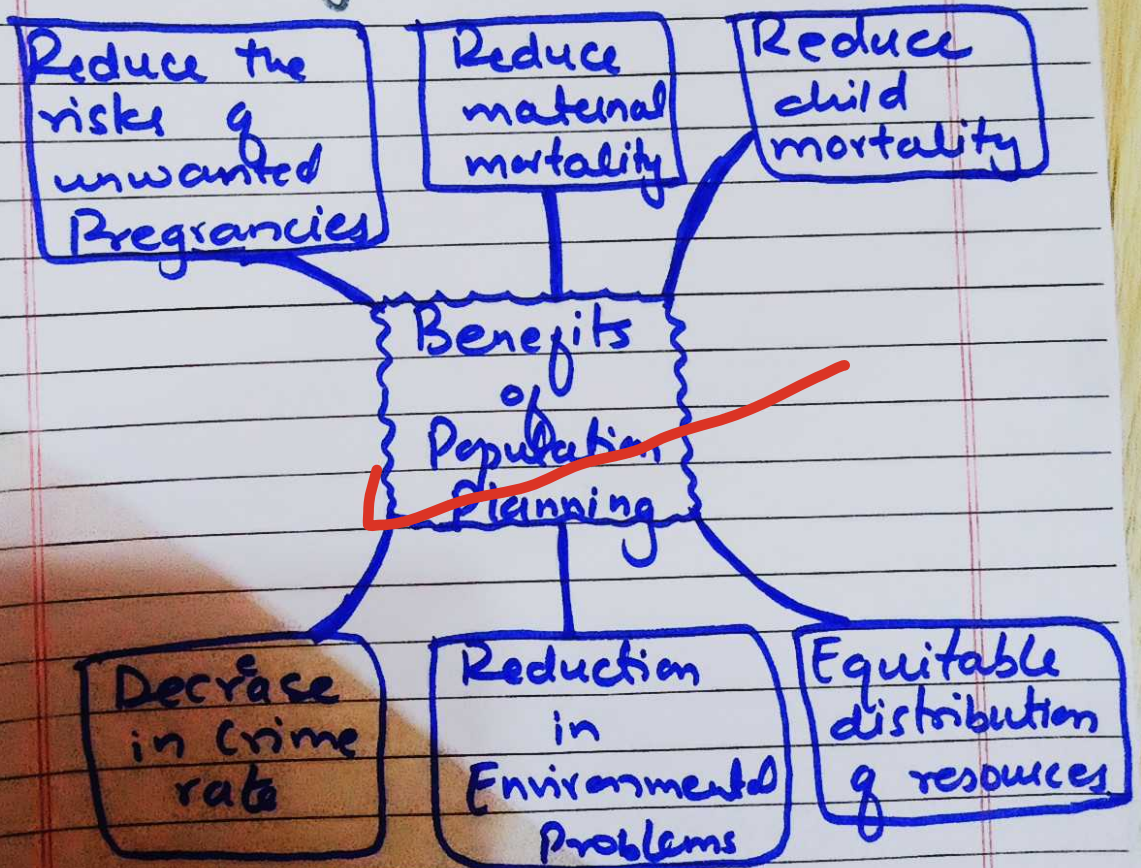 Reduce the
risks of
unwanted
Pregnancies
Reduce
maternal
mortality
Reduce
child
mortality
Benefits
of
Population
Planning
Decrease
in Crime
rate
Reduction
in
Environmental
Problems
Equitable
distribution
of resources